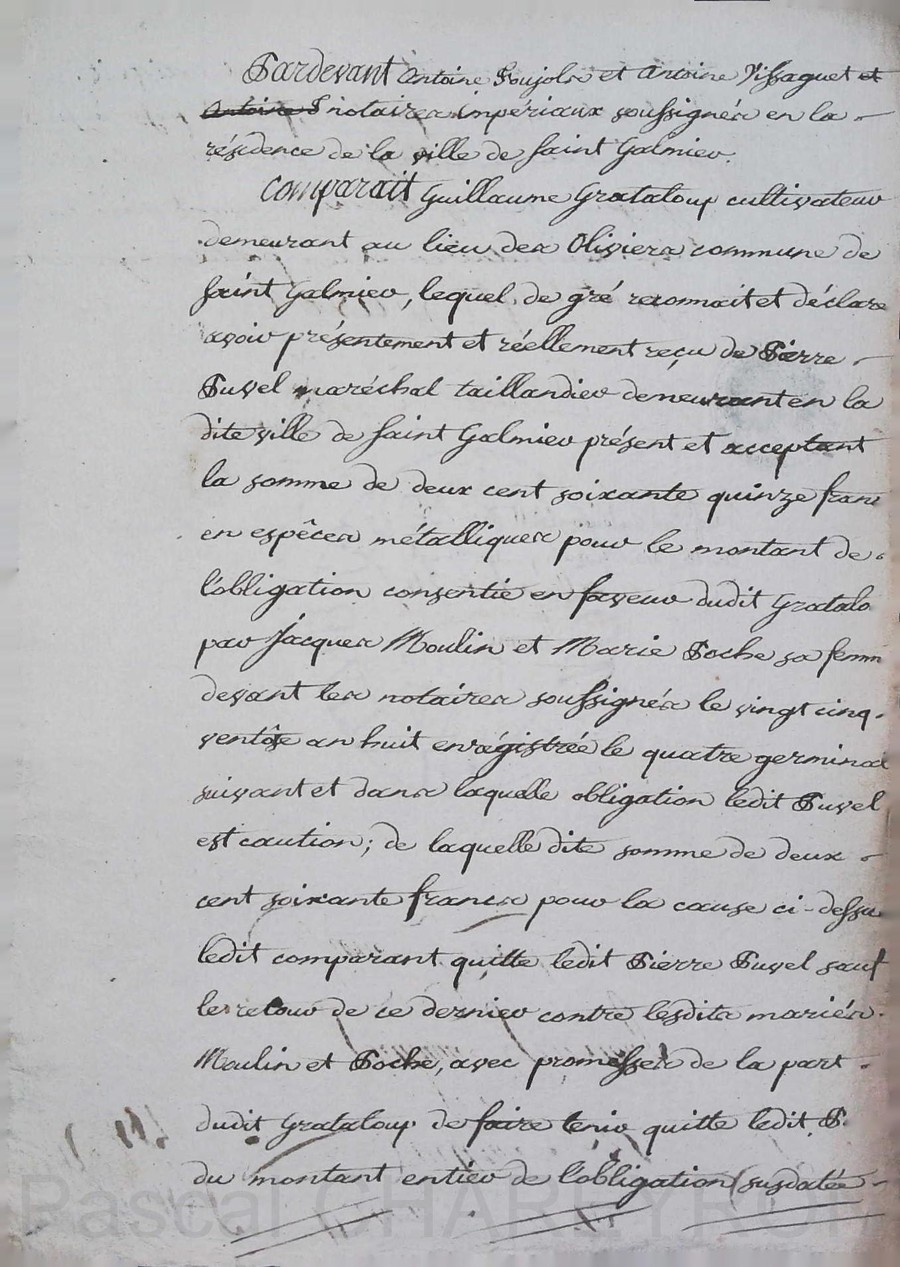 Pardevant Antoine Poujols et Antoine Vissaguet et
Antoine P notaires impériaux soussignés en la
résidence de la ville de saint Galmier.
Comparait Guillaume Grataloup cultivateur
demeurant au lieu des Oliviers commune de
saint Galmier, lequel de gré reconnait et déclare
avoir présentement et réellement reçu de Pierre
Puvel maréchal taillandier demeurant en la
dite ville de saint Galmier présent et acceptant
la somme de deux cent soixante quinze franc
en espêces métalliques pour le montant de
l'obligation consentie en faveur dudit Gratalo
par Jacques Moulin et Marie Poche sa femm
devant les notaires soussignés le vingt cinq
ventôse an huit enrégistrée le quatre germinal
suivant et dans laquelle obligation ledit Puvel
est caution; de laquelle dite somme de deux
cent soixante francs pour la cause ci-dessu
ledit comparant quitte ledit Pierre Puvel sauf
le retour de ce dernier contre lesdits mariés
Moulin et Poche, avec promesses de la part
dudit Grataloup de faire tenir quitte ledit P.
du montant entier de l'obligation susdatée
Pascal CHAREYRON